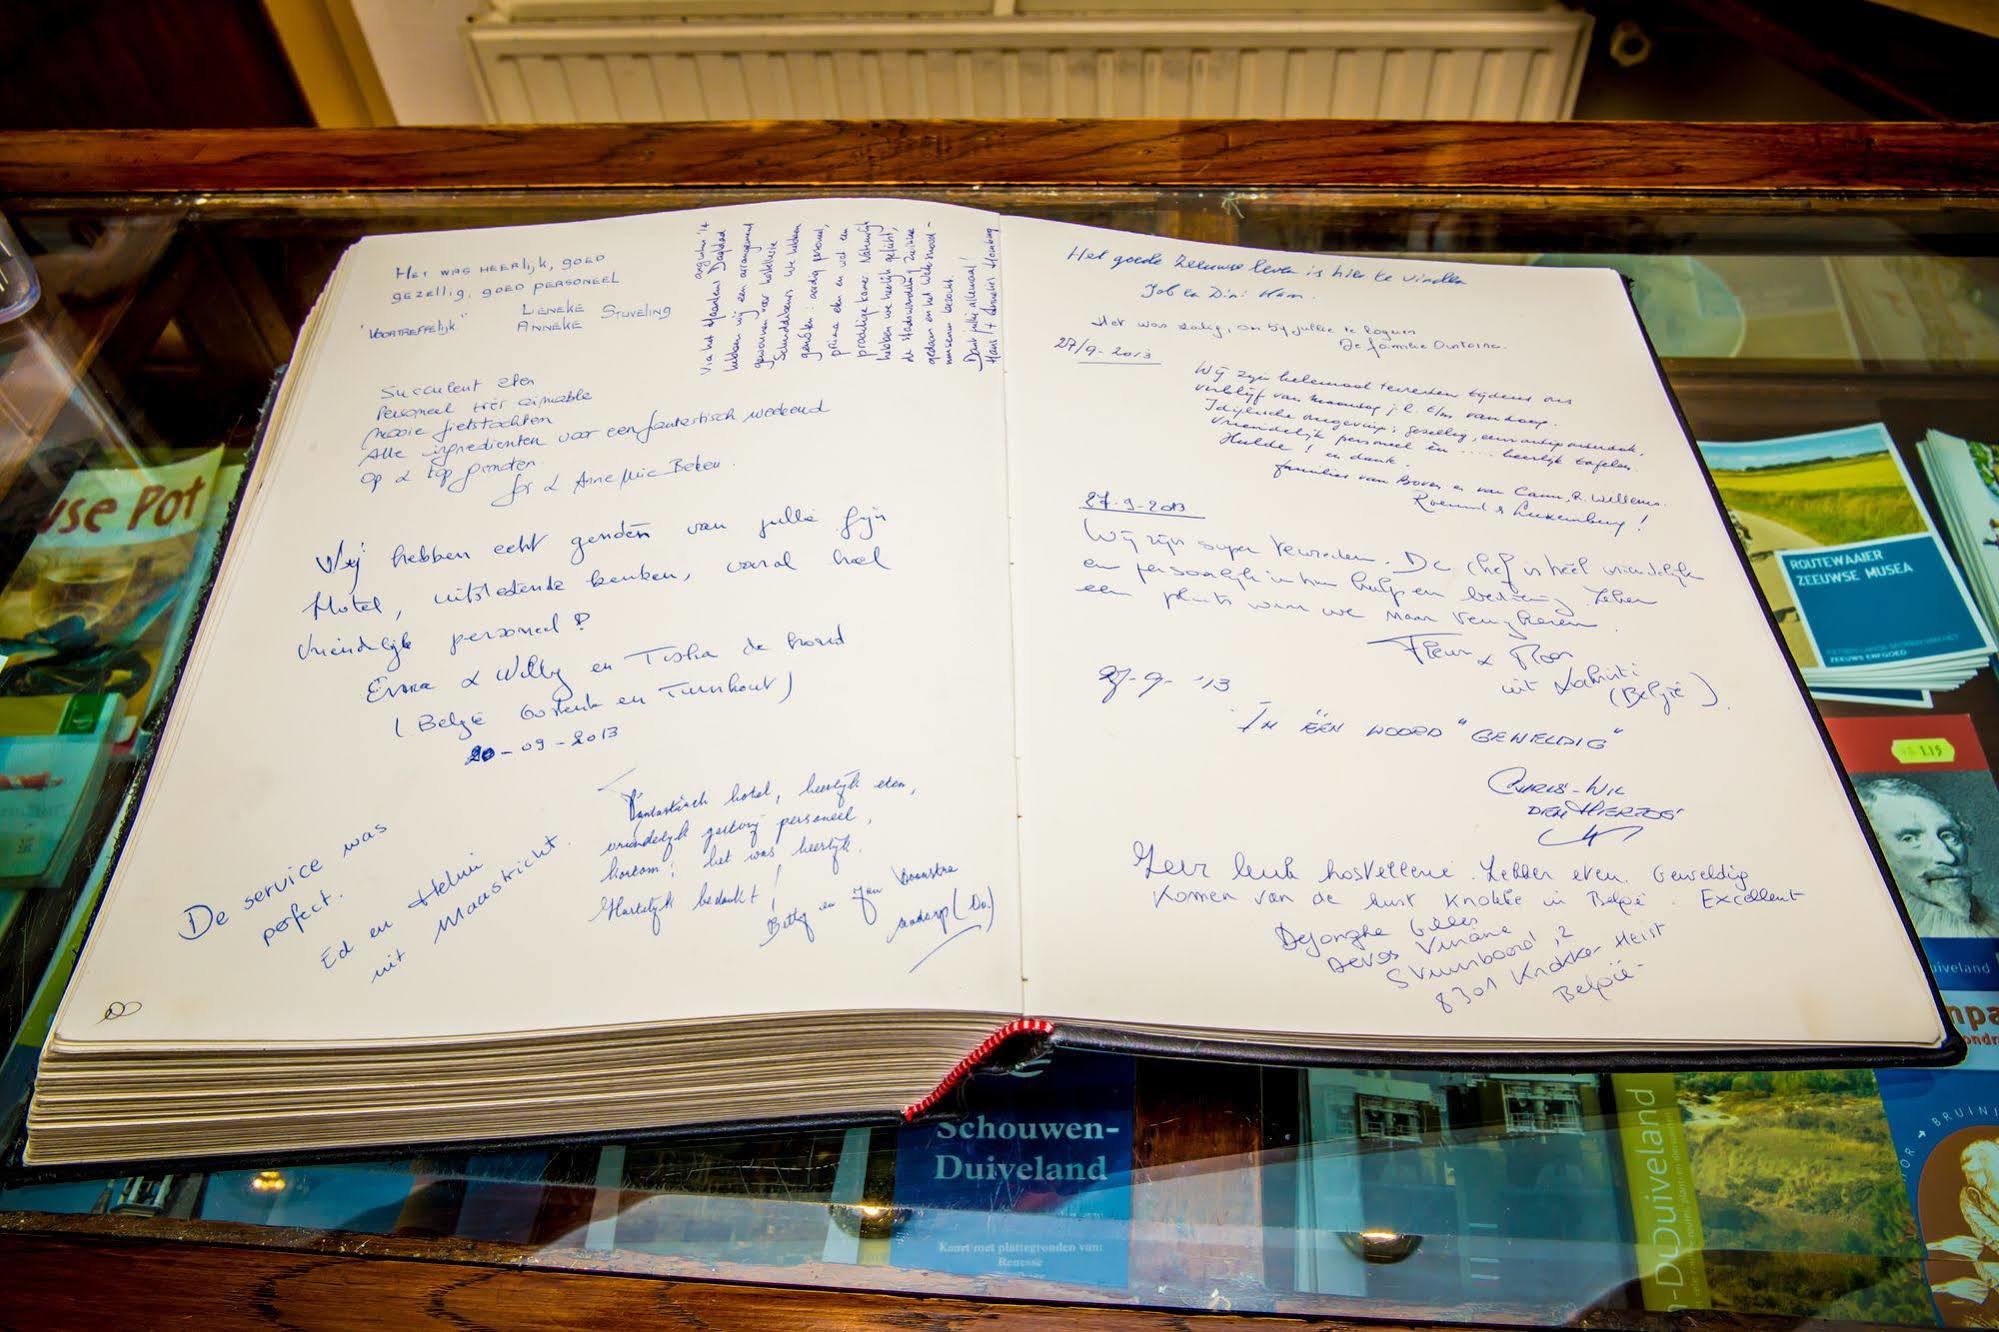 HET WAS HEERLIJK, GOED
GEZELLIG, GOED PERSONEEL
LIENEKE STUVELING
"VOORTREFFELIJK" ANNEKE
Via het Haarlems Dagblad
hebben wij een arrangement
gewonnen voor hostellerie
Schuddebeurs. We hebben
genoten: aardig personeel,
prima eten en wel een
prachtige kamer. Natuurlijk
hebben we heerlijk gefietst,
de stadswandeling Zierikzee
gedaan en het Watersnood-
museum bezocht.
Dank jullie allemaal!
Hans +
Succulent eten
Personeel très aimable
Mooie fietstochten
Alle ingredienten voor een fantastisch weekend
Op & top genoten
& Anne Mie
Wij hebben echt genoten van jullie fijn
Hotel, uitstekende keuken, vooral heel
vriendelijk personeel!
& Willy en
(België en Turnhout)
20-09-2013
De service was
perfect.
Ed en
uit Maastricht.
Fantastisch hotel, heerlijk eten,
vriendelijk personeel,
kortom: het was heerlijk.
Hartelijk bedankt!
Betty en Jan
(Dr.)
Het goede Zeeuwse leven is hier te vinden
Job en Dini Ham.
Het was zalig, om bij jullie te logeren
De familie
27/9-2013
Wij zijn helemaal tevreden tijdens ons
verblijf van maandag j.l. t/m vandaag.
Idyllische omgeving; gezellig, onderdak,
vriendelijk personeel èn .... heerlijk tafelen.
Hulde! en dank.
families van en van R. Willems.
Roermond & Luxemburg!
27-9-2013
Wij zijn super tevreden. De chef is héél vriendelijk
en persoonlijk in hun hulp en bediening. Zeker
een plaats waar we naar
Fleur & Floor
uit
(België).
27-9-'13
IN ÉÉN WOORD "GEWELDIG"
CHRIS-WIL
DEN HERTOG
Zeer leuk hostellerie. Lekker eten. Geweldig
Komen van de kust Knokke in België. Excellent
Dejonghe Gilles
Devos Viviane
, 2
8301 Knokke Heist
België
USE POT
ROUTEWAAIER
ZEEUWSE MUSEA
ZEEUWS ERFGOED
1.15
Schouwen-
Duiveland
Kaart met plattegronden van:
Renesse
-Duiveland